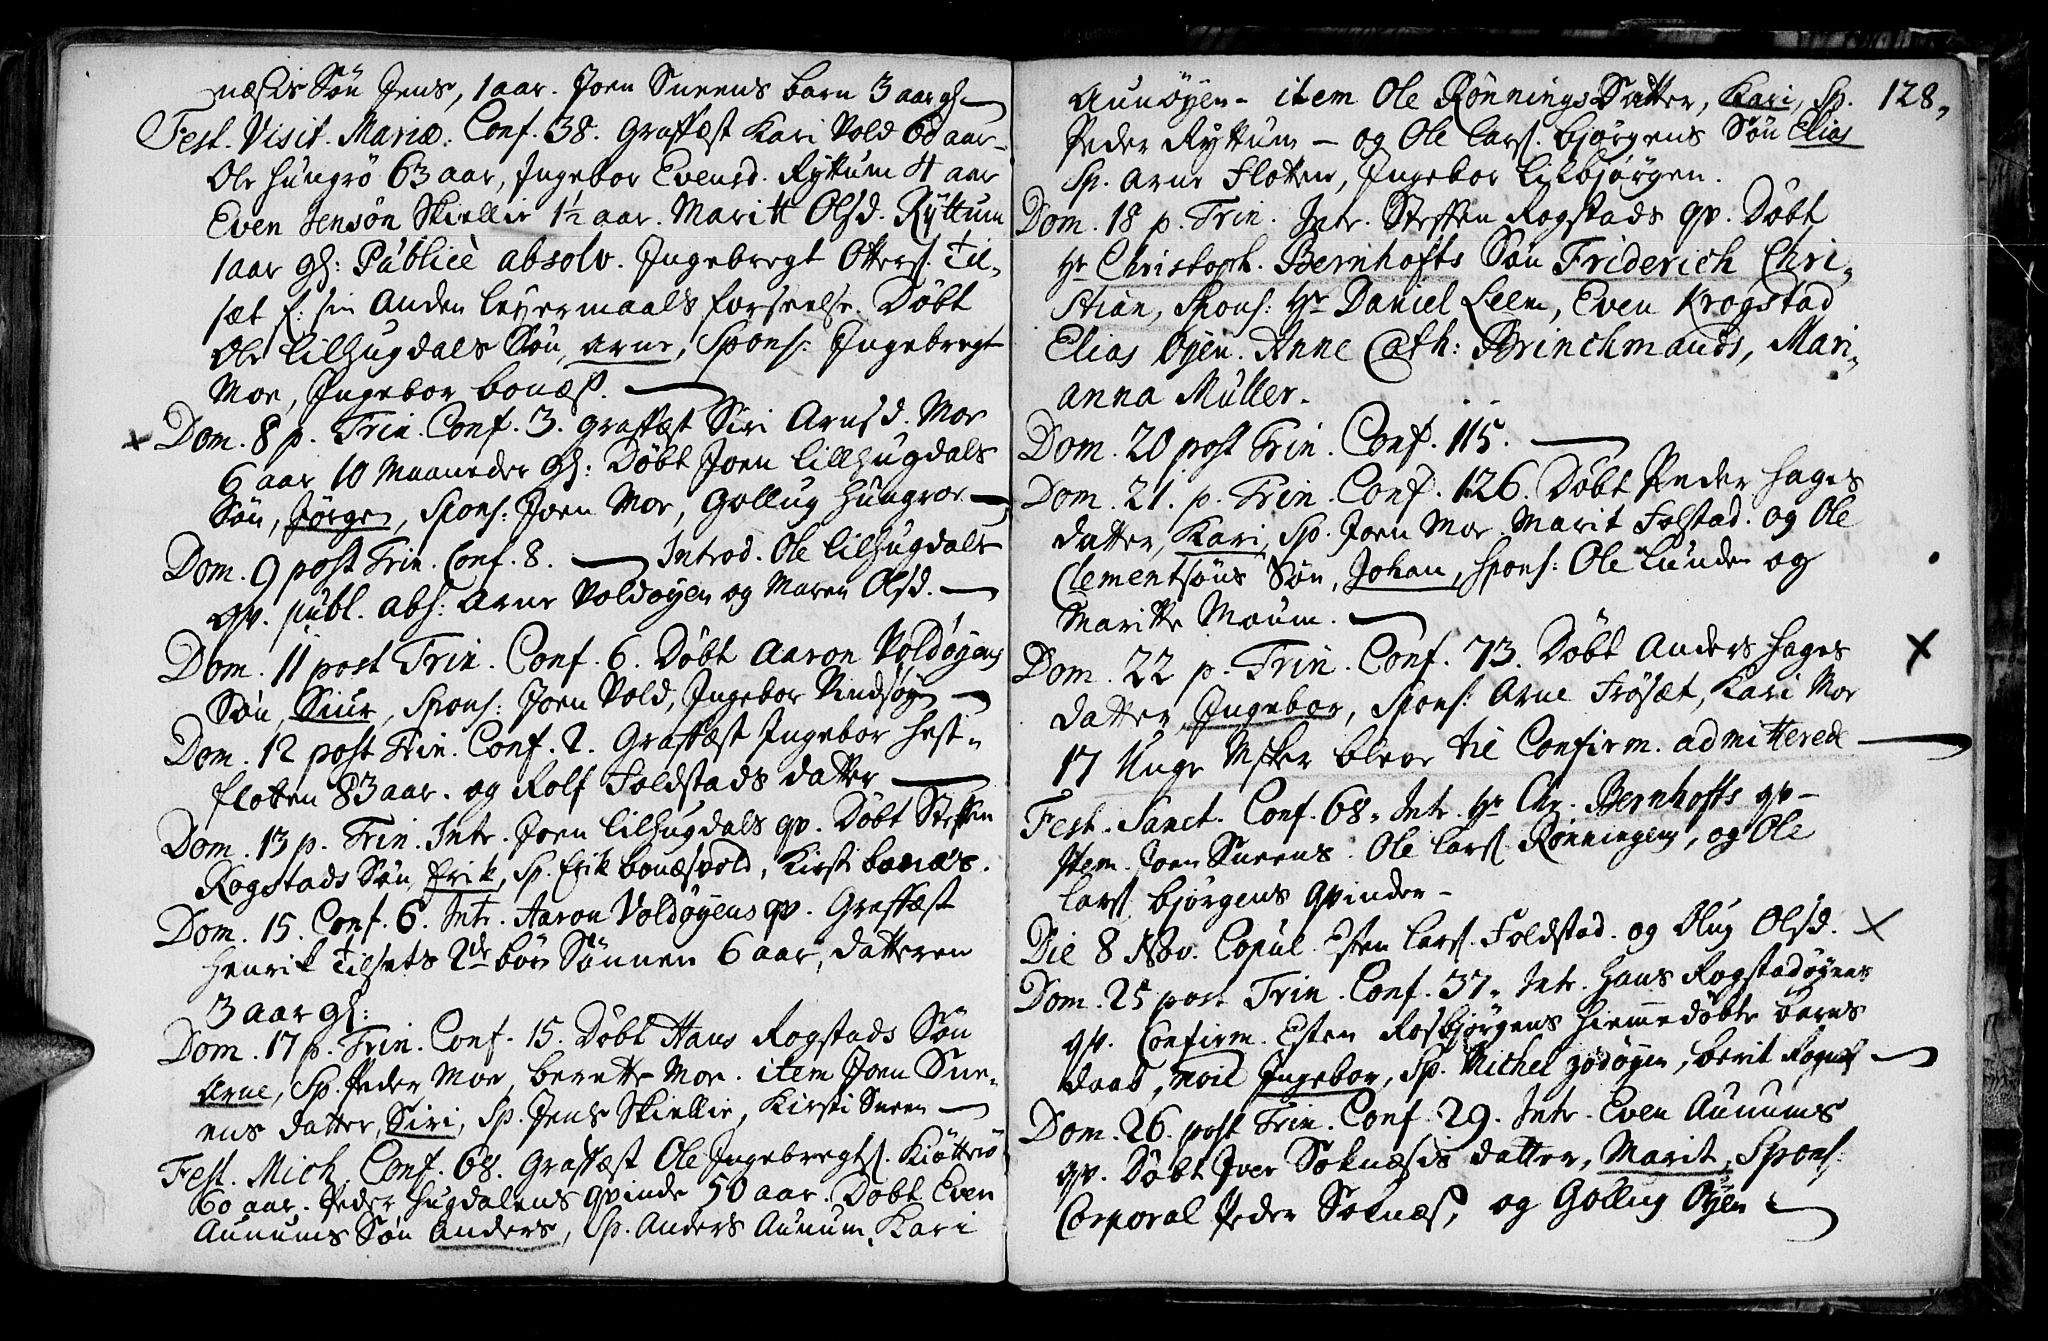 næsis Søn Jens, 1 aar. Joen Sneens barn 3 aar gl.
Fest. Visit. Mariæ. Conf. 38. Graffæst Kari Vold 60 aar
Ole Hungrø 63 aar, Ingebor Evensd. Ryttum 4 aar
Even Jensøn Skiellie 1½ aar. Maritt Olsd. Ryttum
1 aar gl: Publicè absolv. Ingebregt Otters. Til-
sæt f: sin Anden leyermaals forseelse. Døbt
Ole Lilhugdals Søn, Arne, Spons: Ingebregt
Moe, Ingebor Bonæs.
Dom. 8 p. Trin. Conf. 3. Graffæst Siri Arnsd. Moe
6 aar 10 Maaneder gl: Døbt Joen Lillhugdals
Søn, Jørgen, Spons: Joen Moe, Gollug Hungroe
Dom. 9 post Trin. Conf. 8. Introd. Ole Lilhugdals
qv. publ. abs: Arne Voldøyen og Maren Olsd.
Dom. 11 post Trin. Conf. 6. Døbt Aaron Voldøyens
Søn, Siur, Spons: Joen Vold, Ingebor Vindsøyn
Dom. 12 post Trin. Conf. 2. Graffæst Ingebor Hest-
flotten 83 aar. og Rolf Foldstads datter
Dom. 13 p. Trin. Intr. Joen Lilhugdals qv. Døbt Steffen
Rogstads Søn, Erik, Sp. Erik Bonæsvold, Kirsti Bonæs.
Dom. 15. Conf. 6. Intr. Aaron Voldøyens qv. Graffæst
Henrik Tilsets 2de børn Sønnen 6 aar, datteren
3 aar gl:
Dom. 17 p. Trin. Conf. 15. Døbt Hans Rogstads Søn
Arne, Sp. Peder Moe, berette Moe. item Joen Sne-
ens datter, Siri, Sp. Jens Skiellie, Kirsti Sneen
Fest. Mich. Conf. 68. Graffæst Ole Ingebregts. Kiøttrø
60 aar. Peder Hugdalens qvinde 50 aar. Døbt Even
Aunums Søn Anders, Sp. Anders Aunum, Kari
128.
Aunøyen - item Ole Rønnings Datter, Kari, Sp.
Peder Ryttum - og Ole Lars. Bjørgens Søn Elias
Sp. Arne Flotten, Ingebor Lilbjørgen.
Dom. 18 p. Trin. Intr. Steffen Rogstads qv. Døbt
Hr Christoph. Bernhofts Søn Friderich Chri-
stian, Spons: Hr Daniel Leem, Even Krogstad
Elias Øyen. Anne Cath: Brinchmands, Mari-
anna Müller.
Dom. 20 post Trin. Conf. 115.
Dom. 21. p. Trin. Conf. 126. Døbt Peder Hages
datter, Kari, Sp. Joen Moe Marit Folstad. og Ole
Clementsøns Søn, Johan, Spons: Ole Lunden og
Maritte Moum.
Dom. 22 p. Trin. Conf. 73. Døbt Anders Hages
datter Ingebor, Spons: Arne Frøsæt, Kari Moe
17 Unge Msker bleve til Confirm. admitterede
Fest. Sanct. Conf. 68. Intr. Hr Chr. Bernhofts qv-
Item. Joen Sneens. Ole Lars. Rønningens, og Ole
Lars. Bjørgens qvinder -
Die 8 Nov. Copul. Esten Lars. Foldstad. og Olug Olsd.
Dom. 25 post Trin. Conf. 37. Intr. Hans Rogstadøyens
qv. Confirm. Esten Rosbjørgens Hiemmedøbte Barns
daab, Ingebor, Sp. Michel, Berit
Dom. 26. post Trin. Conf. 29. Intr. Even Aunums
qv. Døbt Iver Soknæsis datter, Marit, Spons:
Corporal Peder Soknæs, og Gollug Øyen